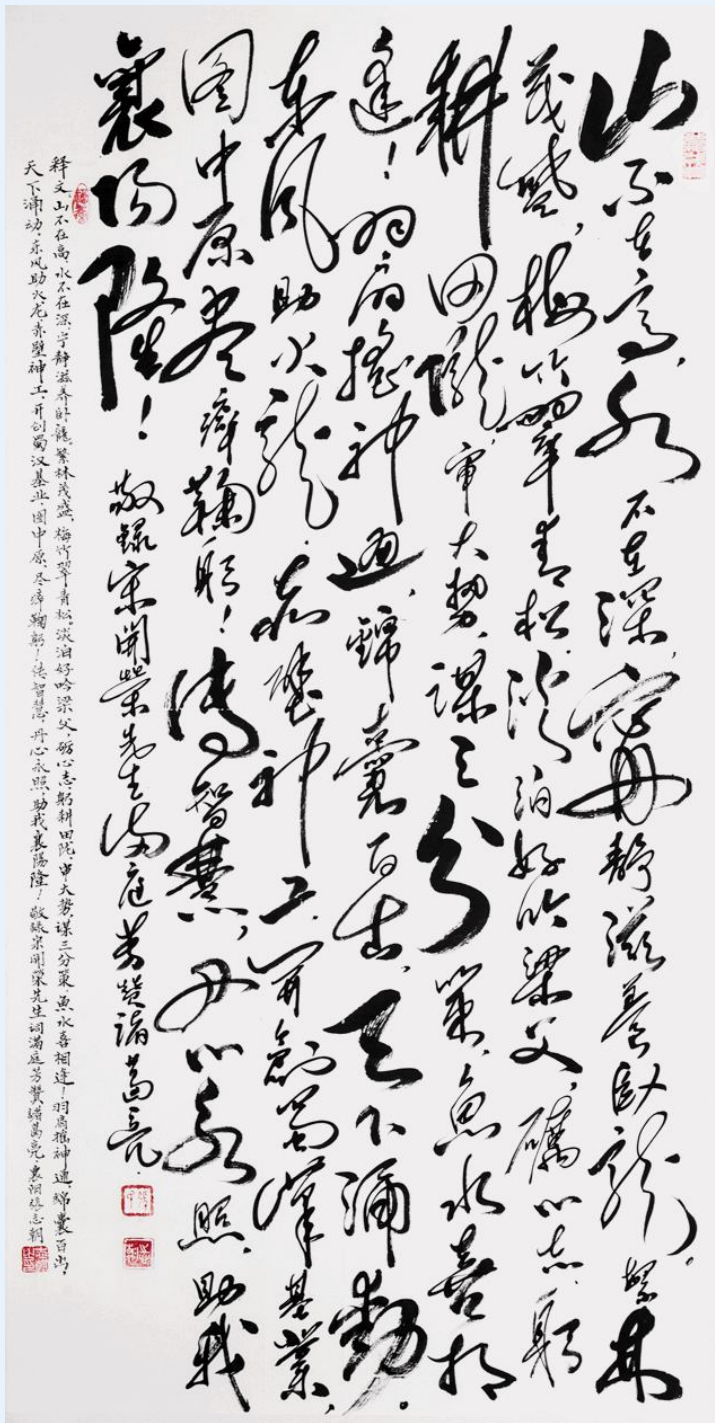 山不在高，水不在深，宁静滋养卧龙。繁林
茂盛，梅竹翠青松。淡泊好吟梁父，砺心志，躬
耕田陇，审大势，谋三分策，鱼水喜相
逢！羽扇摇神通，锦囊百出，天下涌动。
东风助火龙，赤壁神工，开创蜀汉基业，
图中原，尽瘁鞠躬！传智慧，丹心永照，助我
襄阳隆！敬录宋开荣先生满庭芳赞诸葛亮。
释文 山不在高，水不在深，宁静滋养卧龍。繁林茂盛，梅竹翠青松。淡泊好吟梁父，砺心志，躬耕田陇，审大势，谋三分策，鱼水喜相逢！羽扇摇神通，锦囊百出，
天下涌动，东风助火龙，赤壁神工，开创蜀汉基业，图中原，尽瘁鞠躬！传智慧，丹心永照，助我襄陽隆！敬録宋開榮先生词满庭芳贊诸葛亮，襄阳 志朝